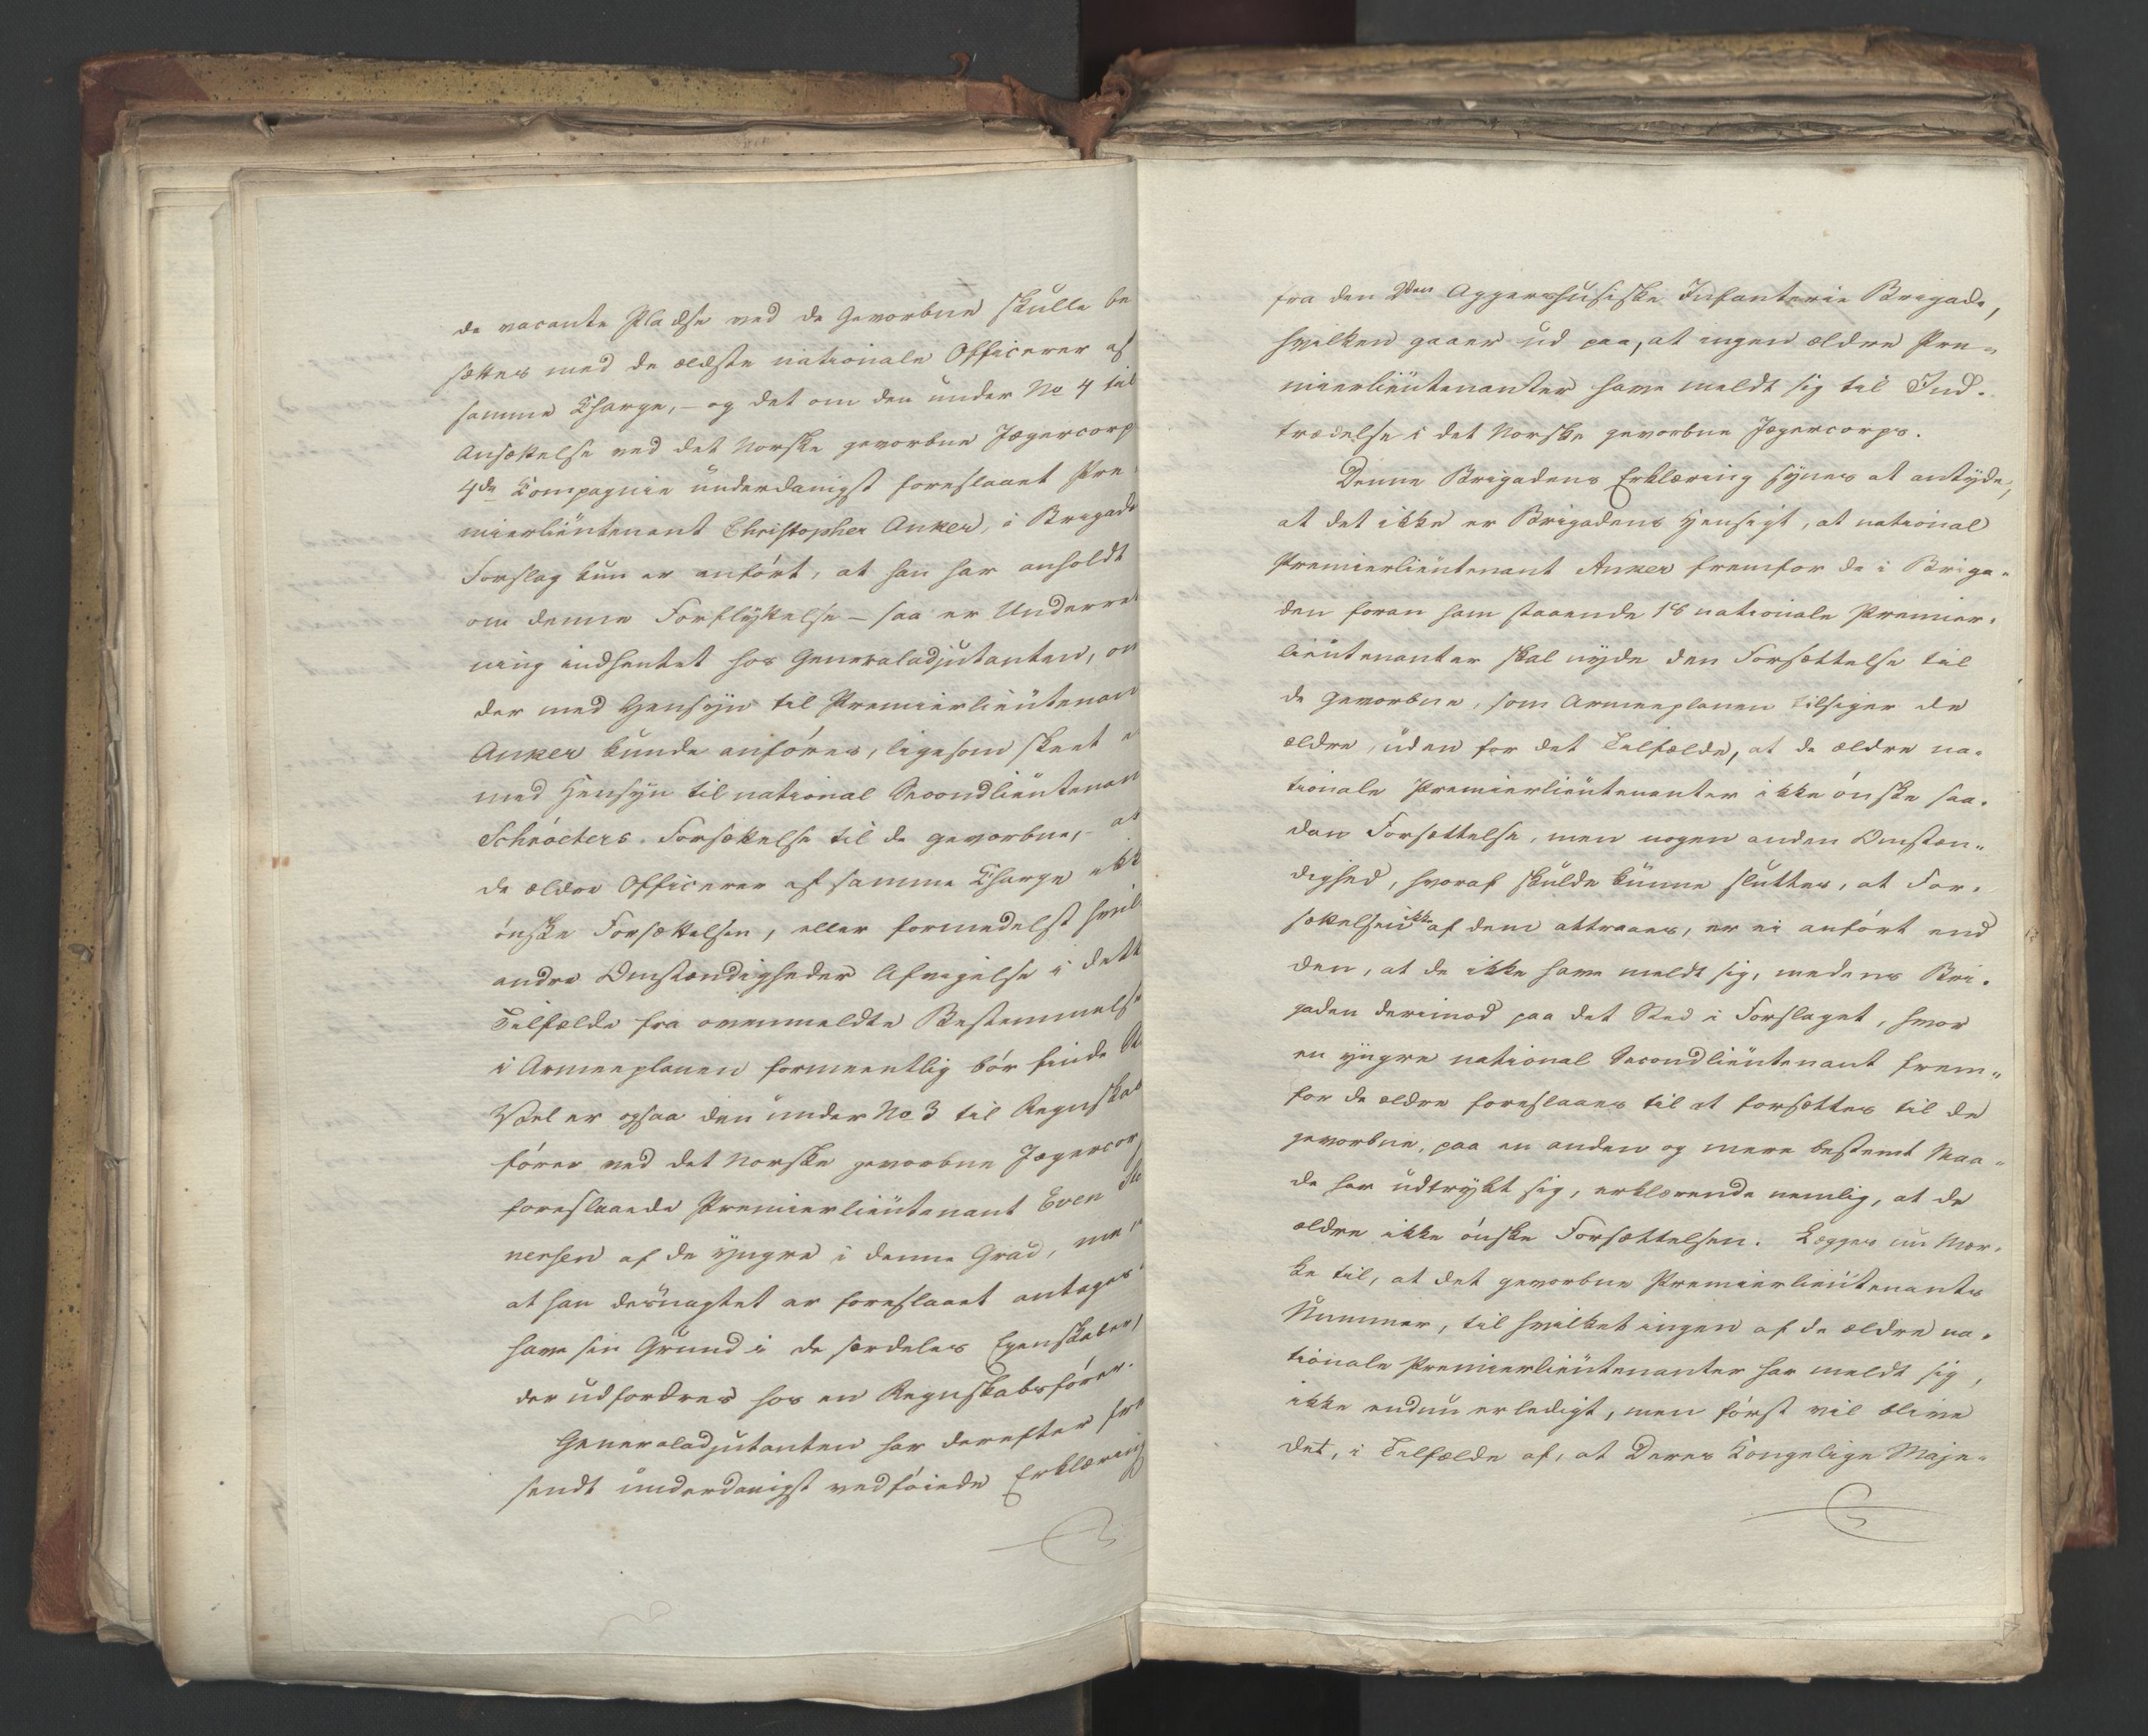 de vacante Pladse ved de Gevorbne skulle be
sættes med de ældste nationale Officerer af
samme Charge, – og det om den under No 4 til
Ansættelse ved det Norske gevorbne Jægercorp
4de Compagnie ünderdanigst foreslaaet Pre
mierlieütenant Christopher Anker, i Brigade
Forslag kun er anført, at han har anholdt
om denne Forflyttelse – saa er Underret
ning indhentet hos Generaladjutanten, om
der med Hensyn til Premierlieütenan
Anker kunde anføres, ligesom skeet e
med Hensyn til national Secondlieütenan
Schröeters Forsættelse til de gevorbne, – at
de ældre Officerer af samme Charge ikk
ønske Forsættelsen, eller formedelst hvil
andre Omstændigheder Afvigelse i dett
Tilfælde fra ovenmeldte Bestemmelse
i Armeeplanen formeentlig bør finde St
Vel er ogsaa den ünder No 3 til Regnskab
fører ved det Norske gevorbne Jægercorp
foreslaaede Premierlieütenant Even
nersen af de yngre i denne Grad, men
at han desüagtet er foreslaaet antages
have sin Grund i de særdeles Egenskaber,
der udfordres hos en Regnskabsfører.
Generaladjutanten har derefter frem
sendt ünderdanigst vedføiede Erklæring
fra den 2den Aggershusiske Infanterie Brigade,
hvilken gaaer ud paa, at ingen ældre Pre-
mierlieütenanter have meldt sig til Ind-
trædelse i det Norske gevorbne Jægercorps.
Denne Brigadens Erklæring synes at antyde,
at det ikke er Brigadens Hensigt, at national
Premierlieütenant Anker fremfor de i Briga-
den foran ham staaende 18 nationale Premier-
lieütenanter skal nyde den Forsættelse til
de Gevorbne, som Armeeplanen tilsiger de
ældre, üden for det Tilfælde, at de ældre na-
tionale Premierlieütenanter ikke ønske saa-
dan Forsættelse, men nogen anden Omstæn-
dighed, hvoraf skulde künne sluttes, at For-
sættelsen ikke af dem attraaes, er ei anført end
den, at de ikke have meldt sig, medens Bri-
gaden derimod paa det Sted i Forslaget, hvor
en yngre national Secondlieütenant frem-
for de ældre foreslaaes til at forsættes til de
gevorbne, paa en anden og mere bestemt Maa-
de har üdtrykt sig, erklærende nemlig, at de
ældre ikke ønske Forsættelsen. Lægges nu Mær-
ke til, at det gevorbne Premierlieütenants
Nummer, til hvilket ingen af de ældre na-
tionale Premierlieütenanter har meldt sig,
ikke endnu er ledigt, men først vil blive
det, i Tilfælde af, at Deres Kongelige Maje-